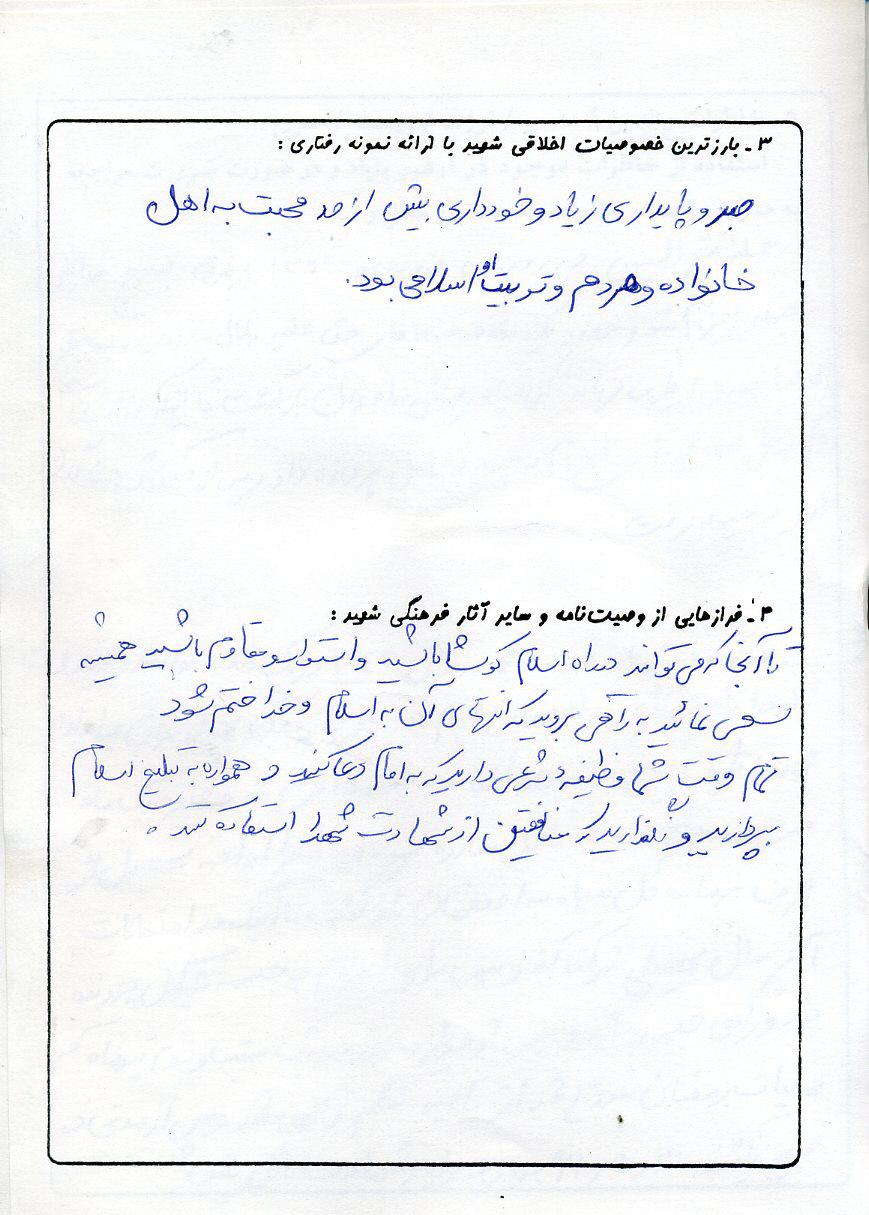 ۳ـ بارزترین خصوصیات اخلاقی شهید با ارائه نمونه رفتاری :
صبر و پایداری زیاد و خودداری بیش از حد محبت به اهل
خانواده و مردم و تربیت او اسلامی بود.
۴ـ فرازهایی از وصیت‌نامه و سایر آثار فرهنگی شهید :
تا آنجا که می تواند در راه اسلام کوشا باشید و استوار و مقاوم باشید همیشه
سعی نمائید به راهی بروید که انتهای آن به اسلام و خدا ختم شود
تمام وقت شما وظیفه شرعی دارید که به امام دعا کنید و همواره به تبلیغ اسلام
بپردازید و نگذارید که منافقین از شهادت شهدا استفاده کنند .